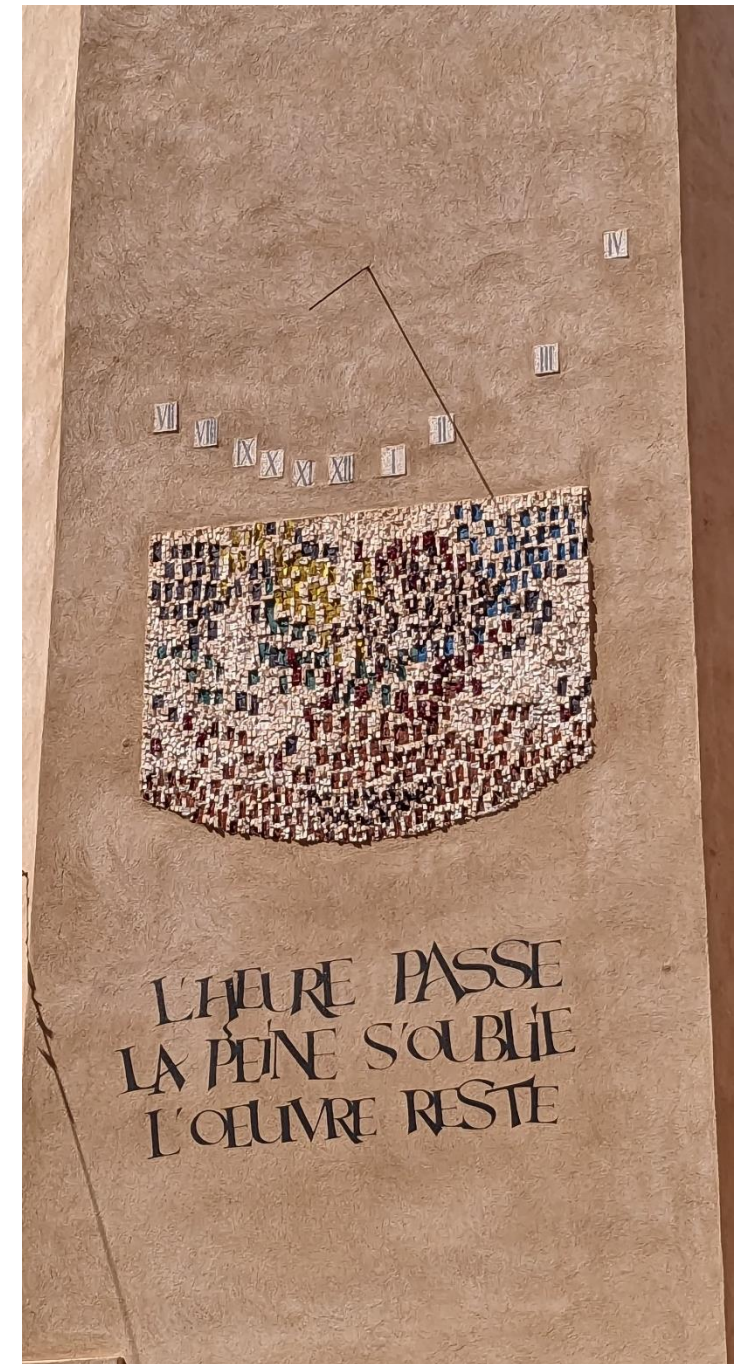 IV
III
VII VIII IX X XI XII I II
L'HEURE PASSE
LA PEINE S'OUBLIE
L'OEUVRE RESTE